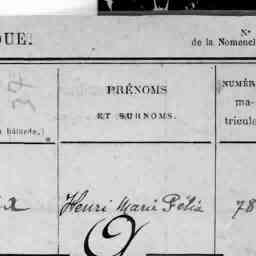 QUE.
N°
de la Nomencl
37
PRÉNOMS
ET SURNOMS.
NUMÉR
ma-
tricule
bâtarde.)
Henri Marie Félix
78